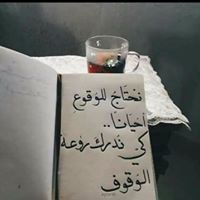 نحتاج للوقوع
أحيانا..
كي ندرك روعة
الوقوف